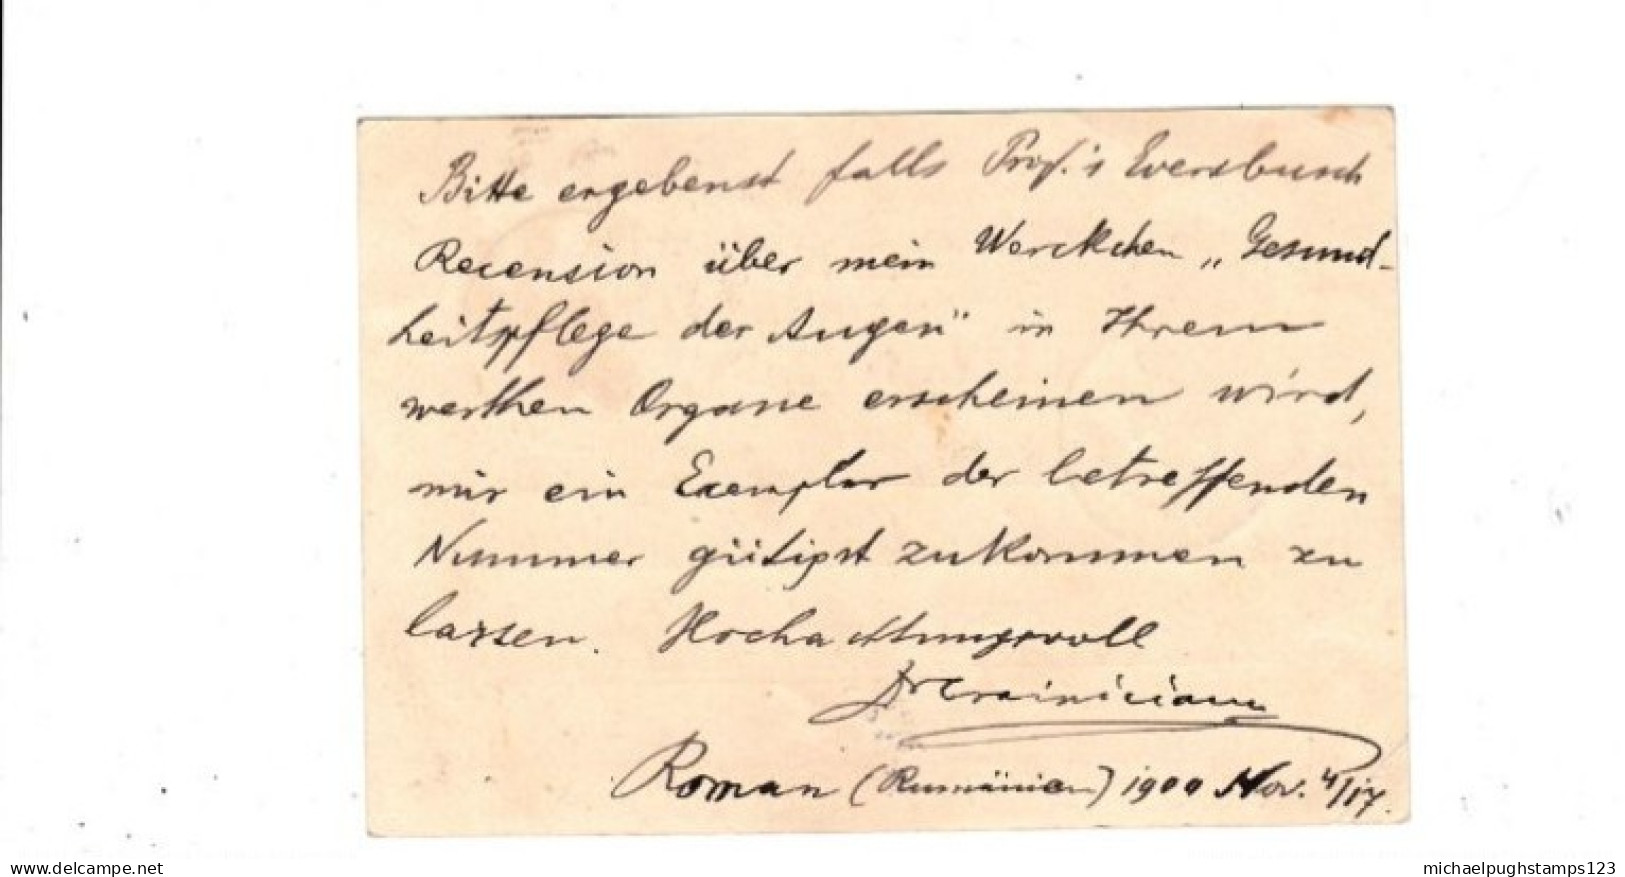 Bitte ergebenst falls Prof.'s Eversbusch
Recension über mein Werckchen „Gesund-
heitspflege der Augen" in Ihrem
werthen Organe erscheinen wird,
mir ein Exemplar der betreffenden
Nummer gütigst zukommen zu
lassen. Hochachtungsvoll
Dr Crainiciann
Roman (Rumänien) 1900 Nov. 4/17.
www.delcampe.net
michaelpughstamps123